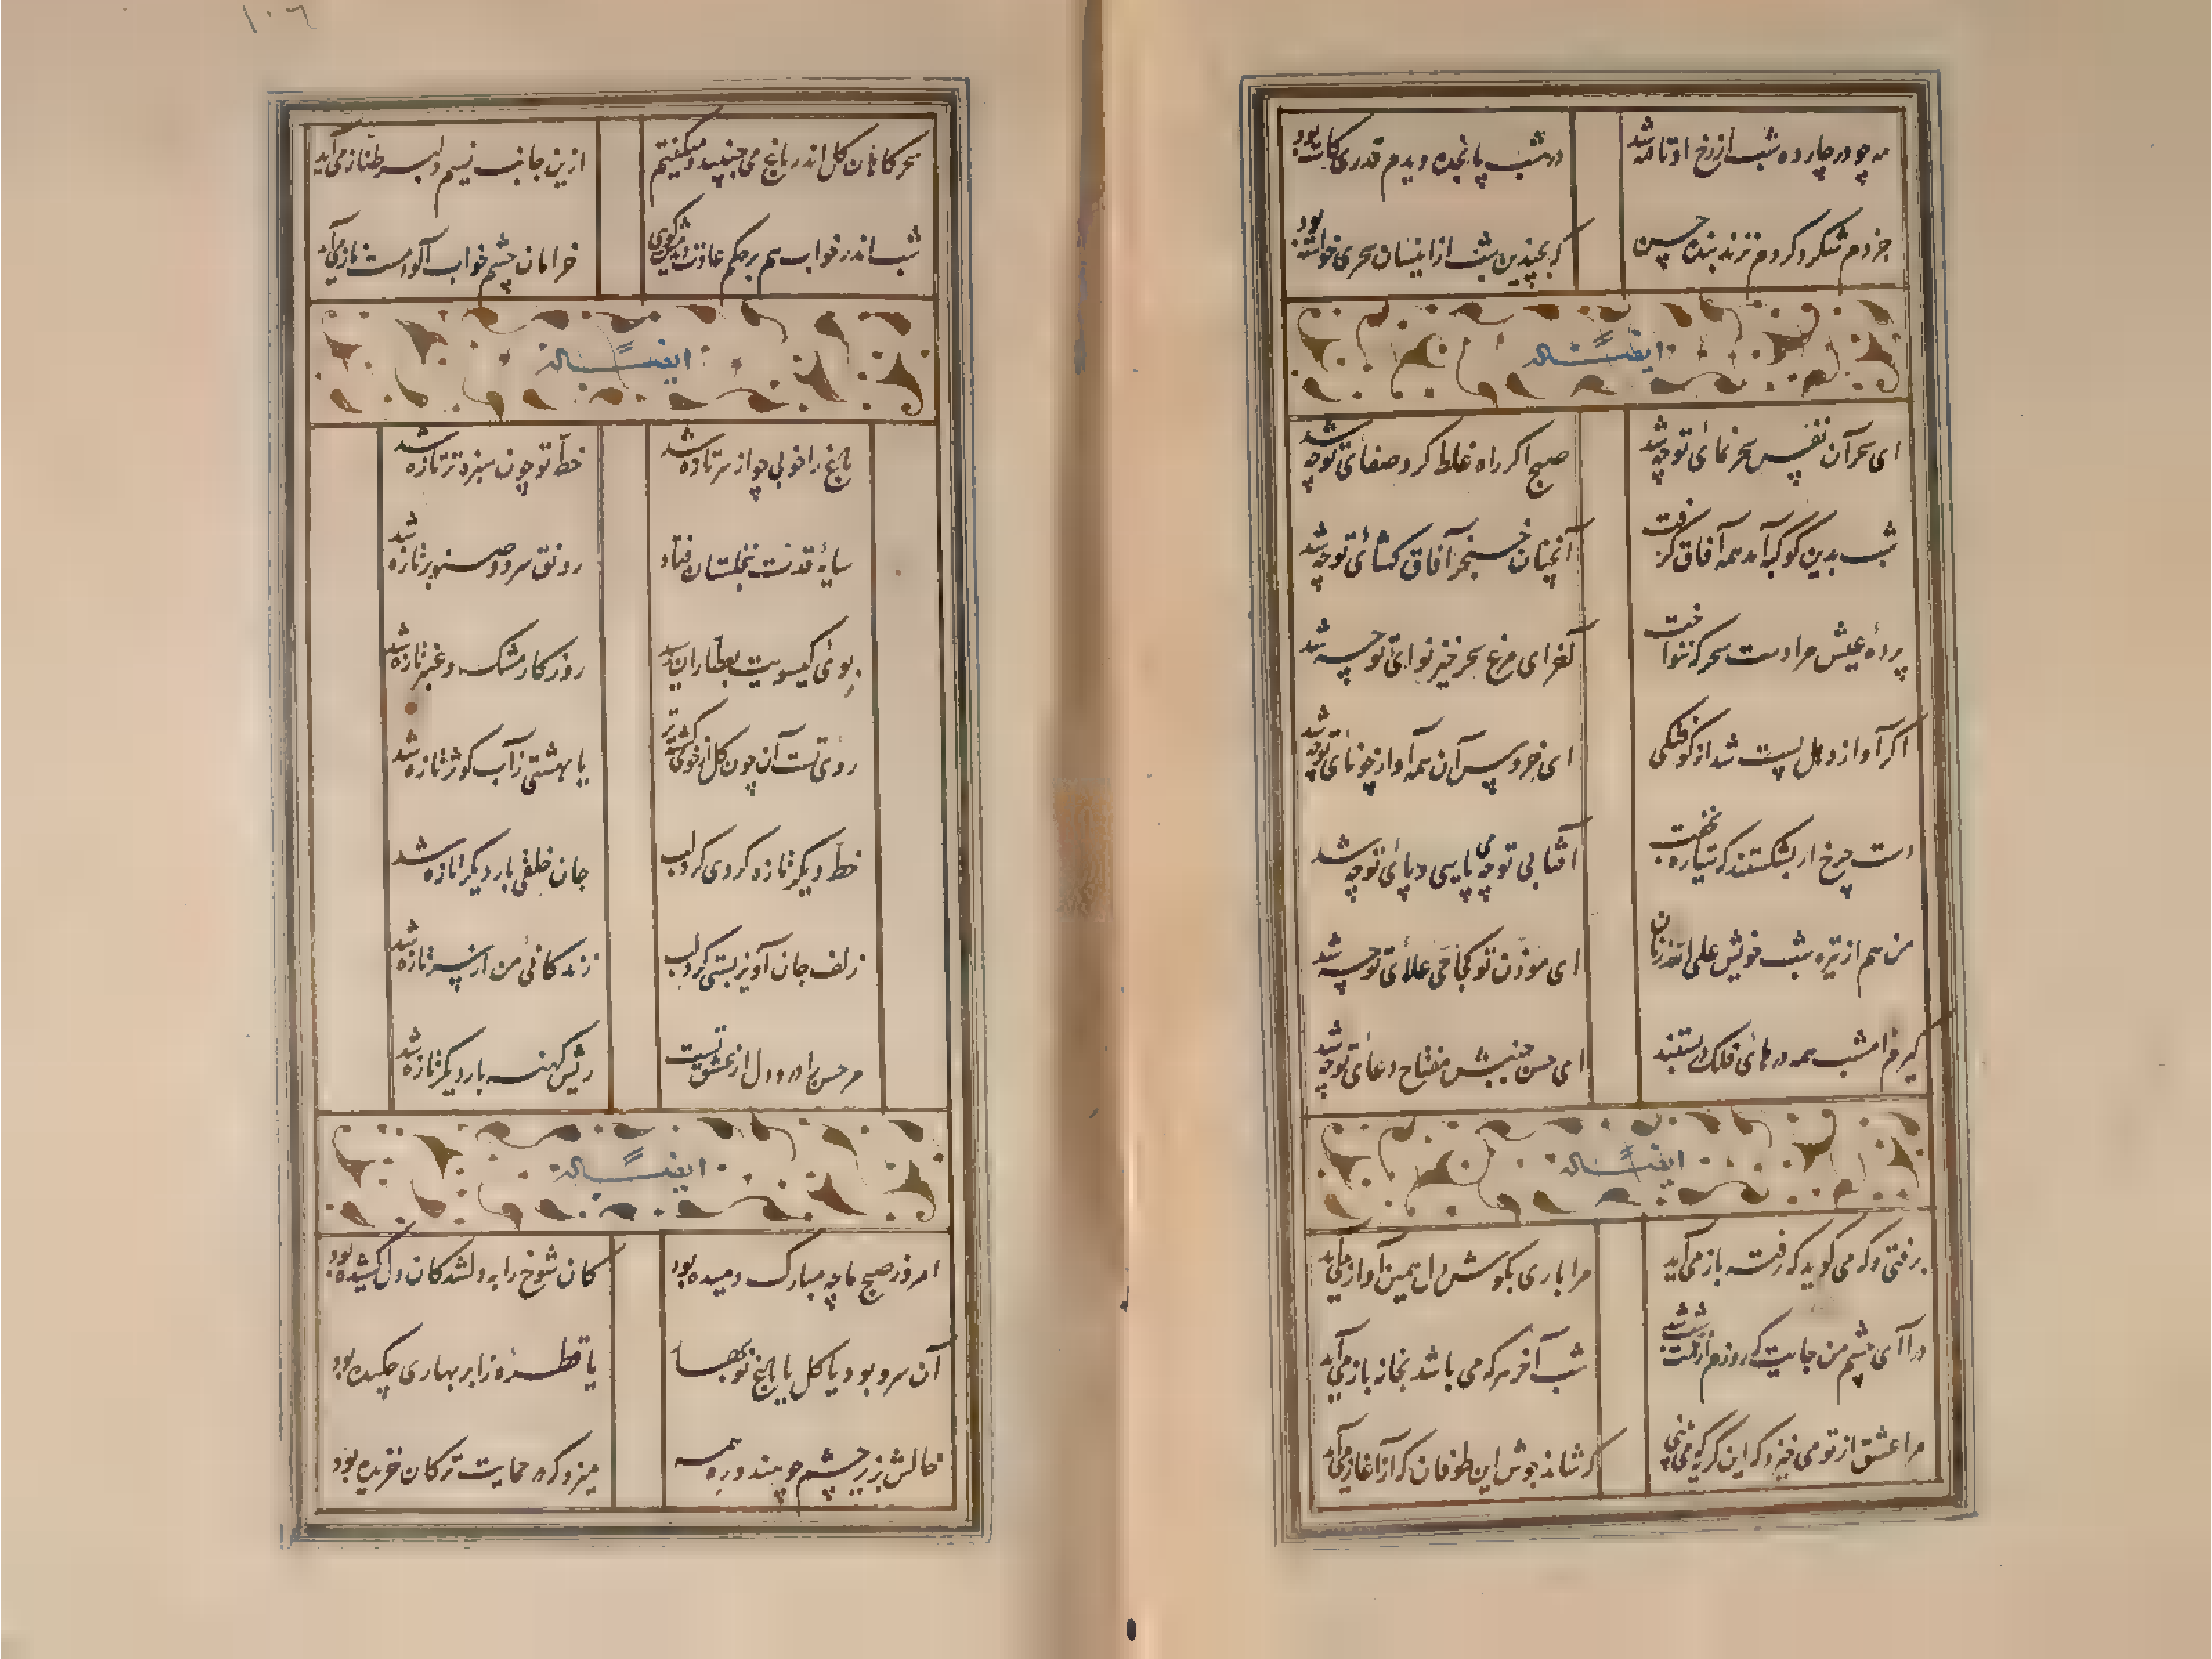 مه چو در چارده شب از رخ او تافته شد در شب پانجده دیدم قدری کاسته بود
جز دم شکر و کردم نزند بنده حسن که بچندین شب از اینسان سحری خواسته بود
ایضاً له
ای سحر آن نفس سحر نمای تو چه شد صبح اگر راه غلط کرد صفای تو چه شد
شب بدین کوکبه آمد همه آفاق گرفت آنچنان خنجر آفاق کشای تو چه شد
پردهٔ عیش مرا دست سحر که ننواخت آخر ای مرغ سحر خیز نوای تو چه شد
اگر آواز دهل پست شد از کوفتگی ای خروس آن همه آواز چو نای تو چه شد
دست چرخ ار بشکستند که سیاره نخفت آفتابی تو چه می پایی و پای تو چه شد
من هم از تیره شب خویش علی الله زنان ای موذن تو کجا حی علای تو چه شد
گیرم امشب همه درهای فلک در بستند ای حسن جنبش مفتاح دعای تو چه شد
ایضاً له
برفتی و که می گوید که رفته باز می آید مرا باری بگوش دل همین آواز می آید
درآ ای چشم من جایت که روزم از غمت شب شد شب آخر هر که می باشد بخانه باز می آید
مرا عشق از تو می خیزد که این گریه می بینی که شاند جوش این طوفان که از آغاز می آید
۱۰۶
سحرگاهان گل اندر باغ می جنبید و میگفتم ازین جانب نسیم دلبر طناز می آید
شب اندر خواب هم بر حکم عادت خرامان چشم خواب آلود مست ناز می آید
ایضاً له
باغ را خوبی چو از سر تازه شد خط تو چون سبزهٔ تر تازه شد
سایهٔ قدت بنخلستان فتاد رونق سرو و صنوبر تازه شد
بوی گیسویت بعطاران رسید روزگار مشک و عنبر تازه شد
روی تست آن چون گل از خوی گشته تر یا بهشتی زآب کوثر تازه شد
خط دیگر تازه کردی گرد لب جان خلقی بار دیگر تازه شد
زلف جان آویز بستی گرد لب زندگانی من از سر تازه شد
مر حسن را درد دل از عشق تست ریش کهنه بار دیگر تازه شد
ایضاً له
امروز صبح ما چه مبارک دمیده بود کان شوخ را به دلشدگان دل کشیده بود
آن سرو بود یا گل یا باغ نوبهار یا قطرهٔ ز ابر بهاری چکیده بود
خالش بزیر چشم چو هندو بره همه میزد که در حمایت ترکان خزیده بود